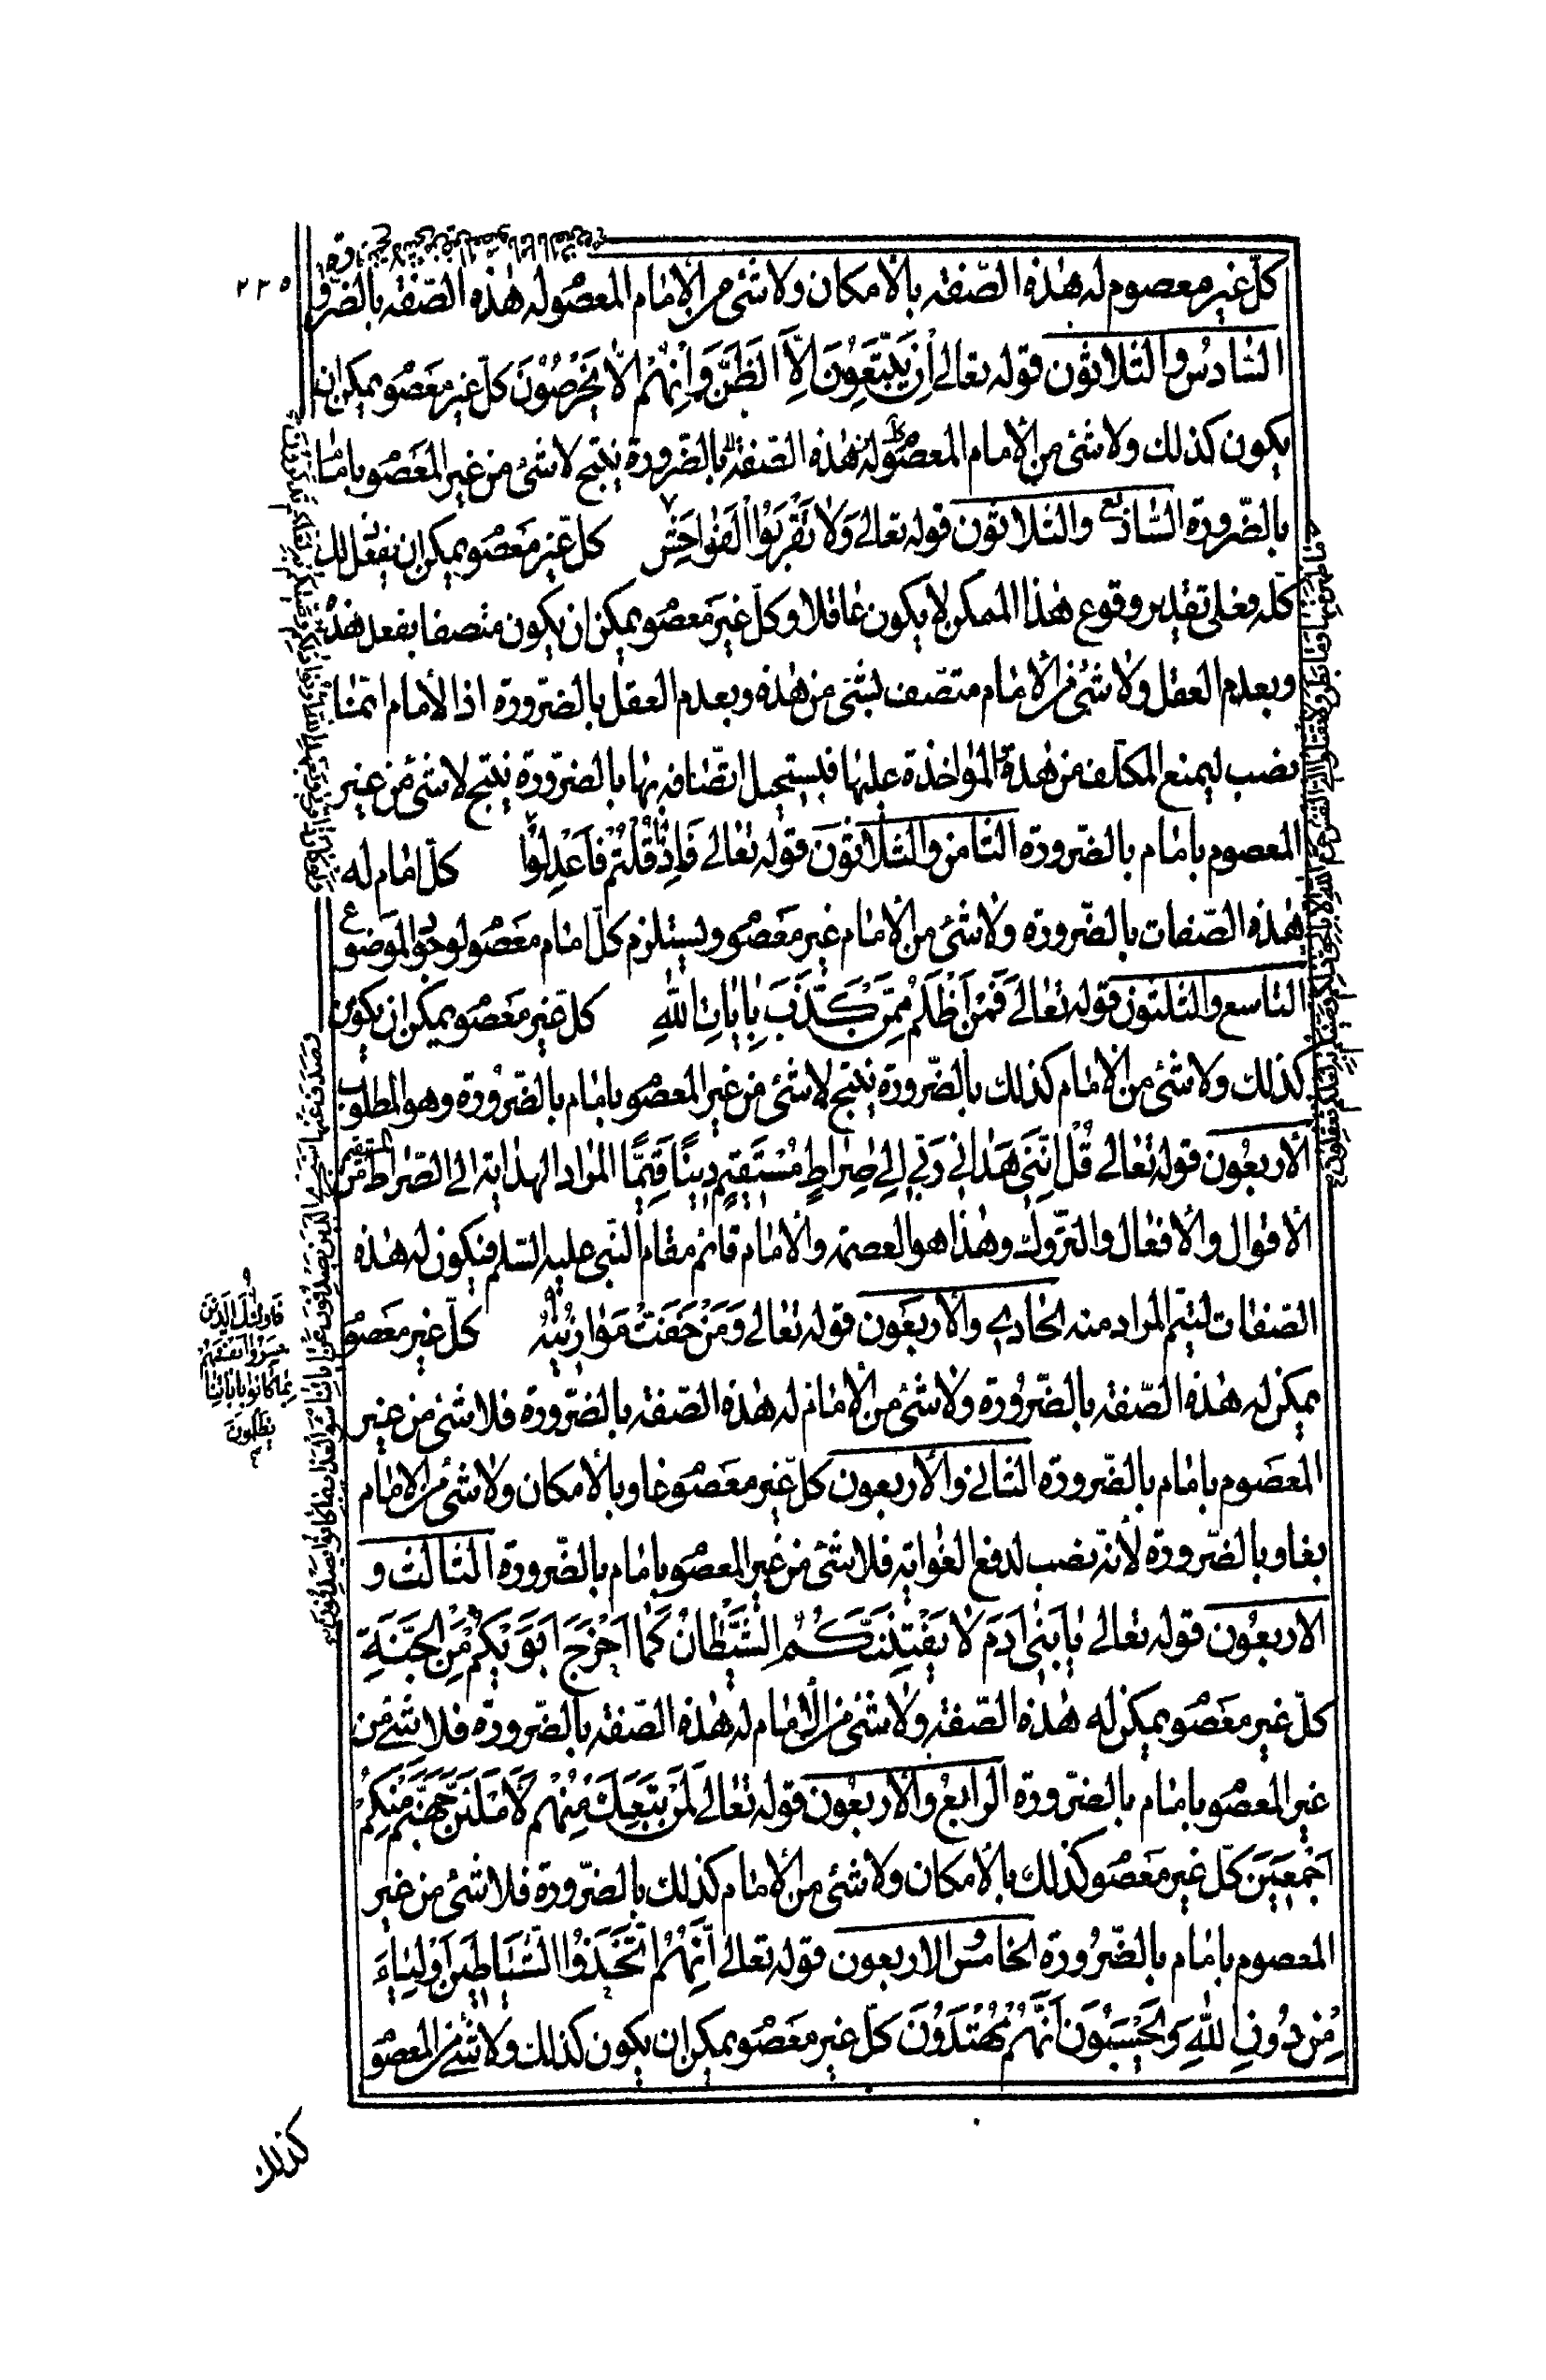 ٢٣٥
كلّ غير معصوم له هذه الصّفة بالامكان ولا شئ من الإمام المعصوله هذه الصّفة بالضّر
السّادس والثلاثون قوله تعالى اِنْ يَتَّبِعُونَ اِلَّا الظَّنَّ وَاِنْهُمْ اِلَّا يَخْرُصُونَ كلّ غير معصو يمكن ان
يكون كذلك ولا شئ من الإمام المعصو له هذه الصّفة بالضّرورة ينتج لا شئ من غير المعصو بامام
بالضّرورة السّابع والثلاثون قوله تعالى وَلَا تَقْرَبُوا الْفَوَاحِشَ كلّ غير معصو يمكن ان يفعل ذلك
كله فعلى تقدير وقوع هذا الممكن لا يكون عاقلا وكلّ غير معصو يمكن ان يكون متصفا بفعل هذه
وبعدم العقل ولا شئ من الإمام متصّف بشئ من هذه وبعدم العقل بالضّرورة اذ الإمام انّما
نصب ليمنع المكلّف من هذه والمؤاخذة عليها فيستحيل اتّصافه بها بالضرّورة ينتج لا شئ من غير
المعصوم بامام بالضّرورة الثامن والثلاثون قوله تعالى فَاِذَا قُلْتُمْ فَاعْدِلُوا كلّ امام له
هذه الصّفات بالضّرورة ولا شئ من الإمام غير معصو ويستلزم كلّ امام معصو لوجود الموضوع
التاسع والثلثون قوله تعالى فَمَنْ اَظْلَمُ مِمَّنْ كَذَّبَ بِاٰيَاتِ اللّٰهِ كلّ غير معصو يمكن ان يكون
كذلك ولا شئ من الإمام كذلك بالضّرورة ينتج لا شئ من غير المعصو بامام بالضّرورة وهو المطلوب
الأربعون قوله تعالى قُلْ اِنَّنِي هَدَانِي رَبِّي اِلَى صِرَاطٍ مُسْتَقِيمٍ دِينًا قِيَمًا المراد الهداية الى الصّراط المستقيم من
الاقوال والافعال والتّروك وهذا هو العصمة والإمام قائم مقام النّبى عليه السّلم فيكون له هذه
الصّفات ليتمّ المراد منه الحادي والأربعون قوله تعالى وَمَنْ خَفَّتْ مَوَازِينُهُ كلّ غير معصو
يمكن له هذه الصّفة بالضّرورة ولا شئ من الإمام له هذه الصّفة بالضّرورة فلا شئ من غير
المعصوم بامام بالضّرورة الثاني والأربعون كلّ غير معصو غاو بالامكان ولا شئ من الإمام
بغاو بالضّرورة لأنّه نصب لدفع الغواية فلا شئ من غير المعصو بامام بالضّرورة الثالث و
الاربعون قوله تعالى يَا بَنِي اٰدَمَ لَا يَفْتِنَنَّكُمُ الشَّيْطَانُ كَمَا اَخْرَجَ اَبَوَيْكُمْ مِنَ الْجَنَّةِ
كلّ غير معصو يمكن له هذه الصّفة ولا شئ من الإمام له هذه الصّفة بالضّرورة فلا شئ من
غير المعصو بامام بالضّرورة الرابع والأربعون قوله تعالى لَمَنْ تَبِعَكَ مِنْهُمْ لَاَمْلَئَنَّ جَهَنَّمَ مِنْكُمْ
اَجْمَعِينَ كلّ غير معصو كذلك بالامكان ولا شئ من الإمام كذلك بالضّرورة فلا شئ من غير
المعصوم بامام بالضّرورة الخامس والاربعون قوله تعالى اِنَّهُمُ اتَّخَذُوا الشَّيَاطِينَ اَوْلِيَاءَ
مِنْ دُونِ اللّٰهِ وَيَحْسَبُونَ اَنَّهُمْ مُهْتَدُونَ كلّ غير معصو يمكن ان يكون كذلك ولا شئ من المعصو
فاولئك الذين
خسروا انفسهم
بما كانوا باياتنا
يظلمون
كذلك